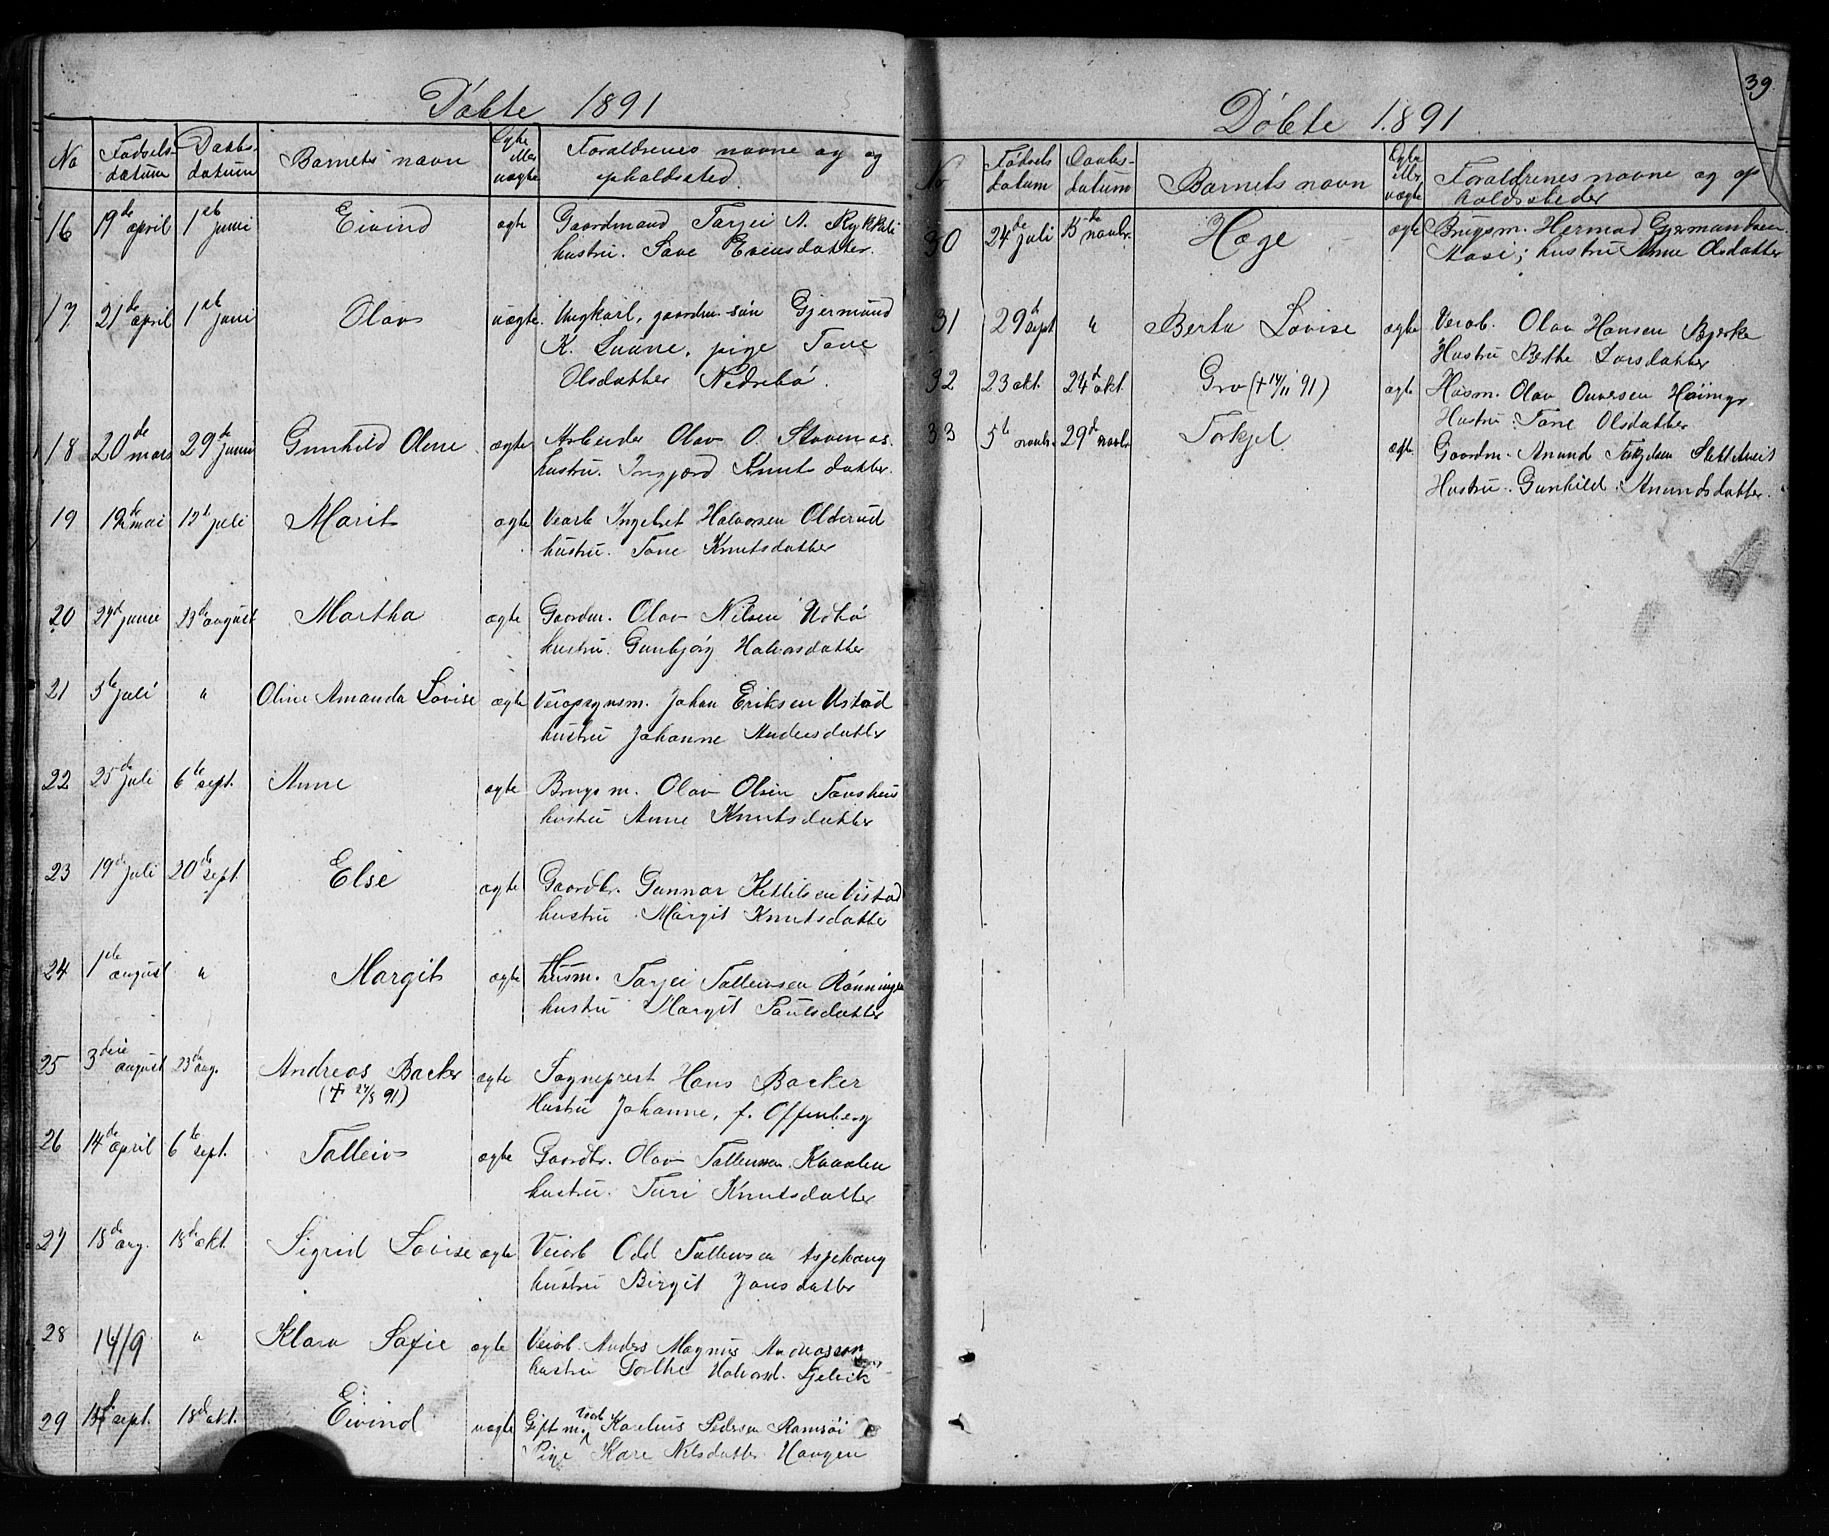 Døbte 1891
No Fødsels- datum Daabs- datum Barnets navn Ægte eller uægte Forældrenes navne og og
opholdssted.
16 19de april 1ste juni Eivind ægte Gaardmand Tarjei A.
hustru. Save Evensdatter.
17 21de april 1ste juni Olav uægte. Ungkarl, gaardm-søn Gjermund
K. Luvne, pige Tone
Olsdatter Nedrebø.
18 20de mars 29de juni Gunhild Oline ægte Arbeider Olav O.
hustru. Ingjerd Knutsdatter.
19 19de mai 12te juli Marit ægte Veiarb Ingebret Halvorsen Olderud
hustru. Tone Knutsdatter
20 juni 23de august Martha ægte Gaardm. Olav Nilsen Udbø
hustru. Gunbjørg Halvorsdatter
21 5te juli " Oline Amanda Lovise ægte Veiopsynsm. Johan Eriksen Ustad
hustru Johanne Andersdatter
22 25de juli 6te sept. Anne ægte Brugsm. Olav Olsen
hustru Anne Knutsdatter
23 19de juli 20de sept. Else ægte Gaardbr. Gunnar Kittilsen Vistad
hustru. Margit Knutsdatter
24 1ste august " Margit ægte Husm. Tarjei Talleivsen Rønningen
hustru Margit Saulesdatter
25 3die august 23de aug. Andreas Backer ægte Sogneprest Hans Backer
(† 27/8 91) Hustru Johanne, f. Offenberg
26 14de april 6te sept. Talleiv ægte Gaardbr. Olav Talleivssen Kvaalen
hustru. Turi Knutsdatter
27 18de aug. 18de okt. Sigrid Lovise ægte Veiarb Odd Talleivsen Aspehaug
hustru Birgit Jonsdatter
28 14/9 " Klara Sofie ægte Veiarb. Anders Magnus Andreassen
hustru Dorthe Halvorsd. Fjelvik
29 sept. 18de okt. Eivind uægte Gift m. Veiarb Karelius Pedersen Ramsøi
Pige Kare Nilsdatter Haugen
39
Døbte 1891
No Fødsels datum Daabs- datum Barnets navn Ægte eller uægte Forældrenes navne og op
holdssteder
30 24de juli 15de novbr. Hæge ægte Brugsm. Hermod Gjermundsen
Mosi; hustru Anne Olsdatter
31 29de sept " Berta Lovise ægte Veiarb. Olav Hansen Bjerke
Hustru Berthe Larsdatter
32 23 okt. 24de okt Gro († 14/11 91) ægte Husm. Olav Onversen
Hustru Tone Olsdatter
33 5te novbr. 29de novbr Torkjel ægte. Gaardm. Anund Torkjelsen Slettetveit
Hustru. Gunhild Anundsdatter.